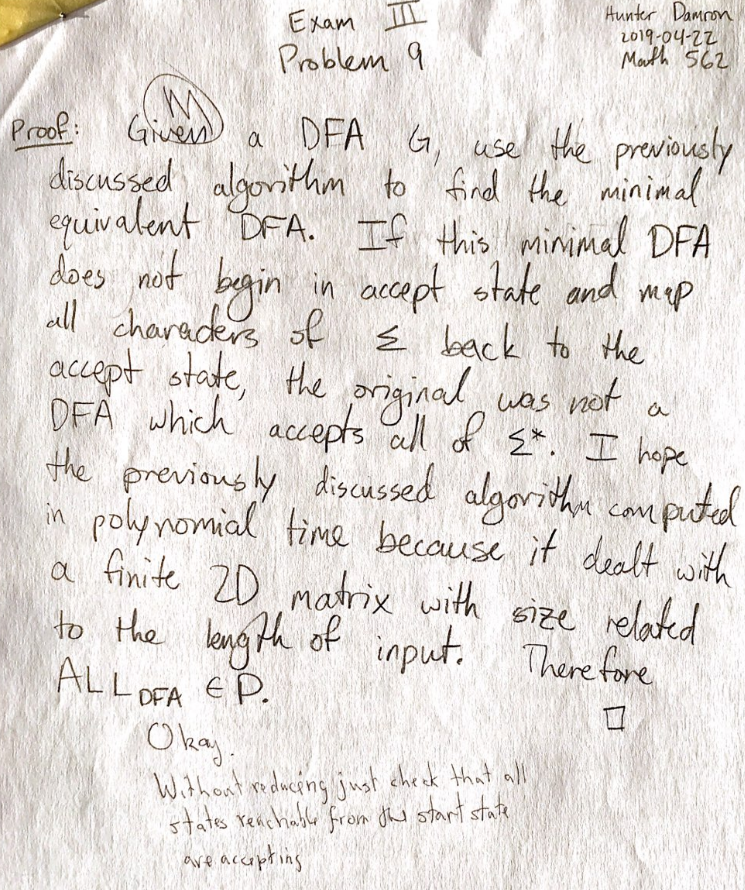 Exam III
Problem 9
Hunter Damron
2019-04-22
Math 562
Proof: Given a DFA G, use the previously
discussed algorithm to find the minimal
equivalent DFA. If this minimal DFA
does not begin in accept state and map
all characters of Σ back to the
accept state, the original was not a
DFA which accepts all of Σ*. I hope
the previously discussed algorithm computed
in polynomial time because it dealt with
a finite 2D matrix with size related
to the length of input. Therefore
ALL_DFA ∈ P.
□
Okay.
Without reducing just check that all
states reachable from the start state
are accepting